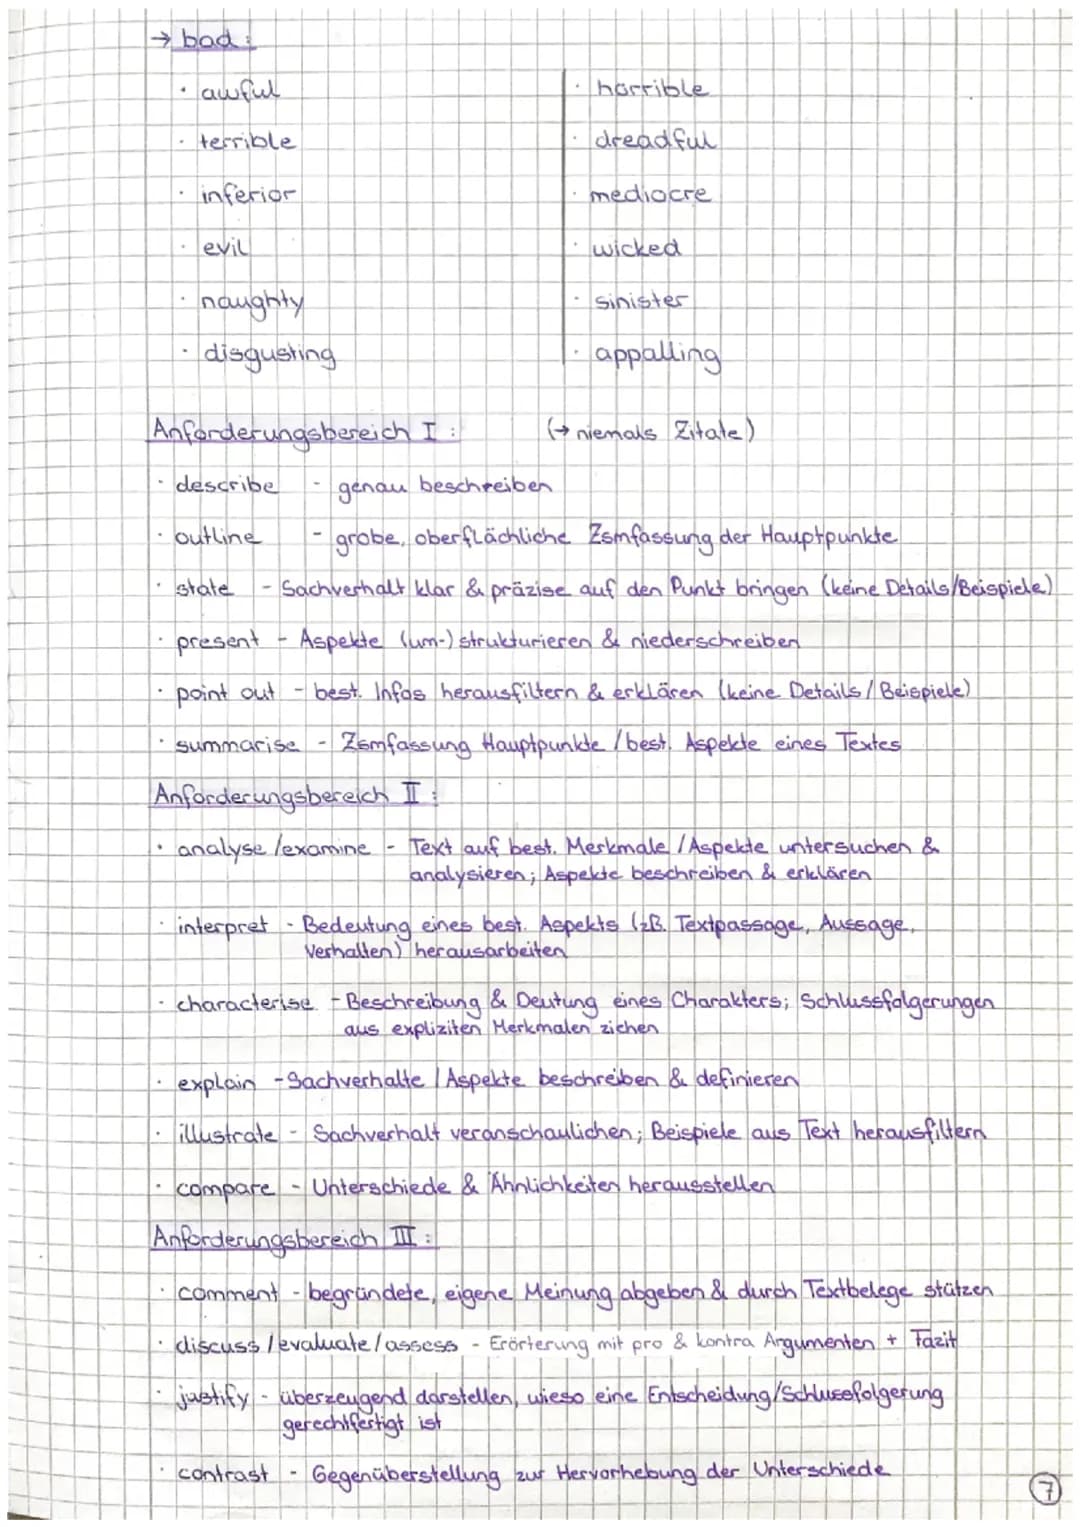 → bad:
· awful · horrible
· terrible · dreadful
· inferior · mediocre
· evil · wicked
· naughty · sinister
· disgusting · appalling
Anforderungsbereich I: (→ niemals Zitate)
· describe - genau beschreiben
· outline - grobe, oberflächliche Zsmfassung der Hauptpunkte
· state - Sachverhalt klar & präzise auf den Punkt bringen (keine Details/Beispiele)
· present - Aspekte (um-) strukturieren & niederschreiben
· point out - best. Infos herausfiltern & erklären (keine Details/Beispiele)
· summarise - Zsmfassung Hauptpunkte / best. Aspekte eines Textes
Anforderungsbereich II:
· analyse/examine - Text auf best. Merkmale/Aspekte untersuchen &
analysieren; Aspekte beschreiben & erklären
· interpret - Bedeutung eines best. Aspekts (zB. Textpassage, Aussage,
Verhalten) herausarbeiten
· characterise - Beschreibung & Deutung eines Charakters; Schlussfolgerungen
aus expliziten Merkmalen ziehen
· explain - Sachverhalte / Aspekte beschreiben & definieren
· illustrate - Sachverhalt veranschaulichen; Beispiele aus Text herausfiltern
· compare - Unterschiede & Ähnlichkeiten herausstellen
Anforderungsbereich III:
· comment - begründete, eigene Meinung abgeben & durch Textbelege stützen
· discuss/evaluate/assess - Erörterung mit pro & kontra Argumenten + Fazit
· justify - überzeugend darstellen, wieso eine Entscheidung/Schlussfolgerung
gerechtfertigt ist
· contrast - Gegenüberstellung zur Hervorhebung der Unterschiede
7